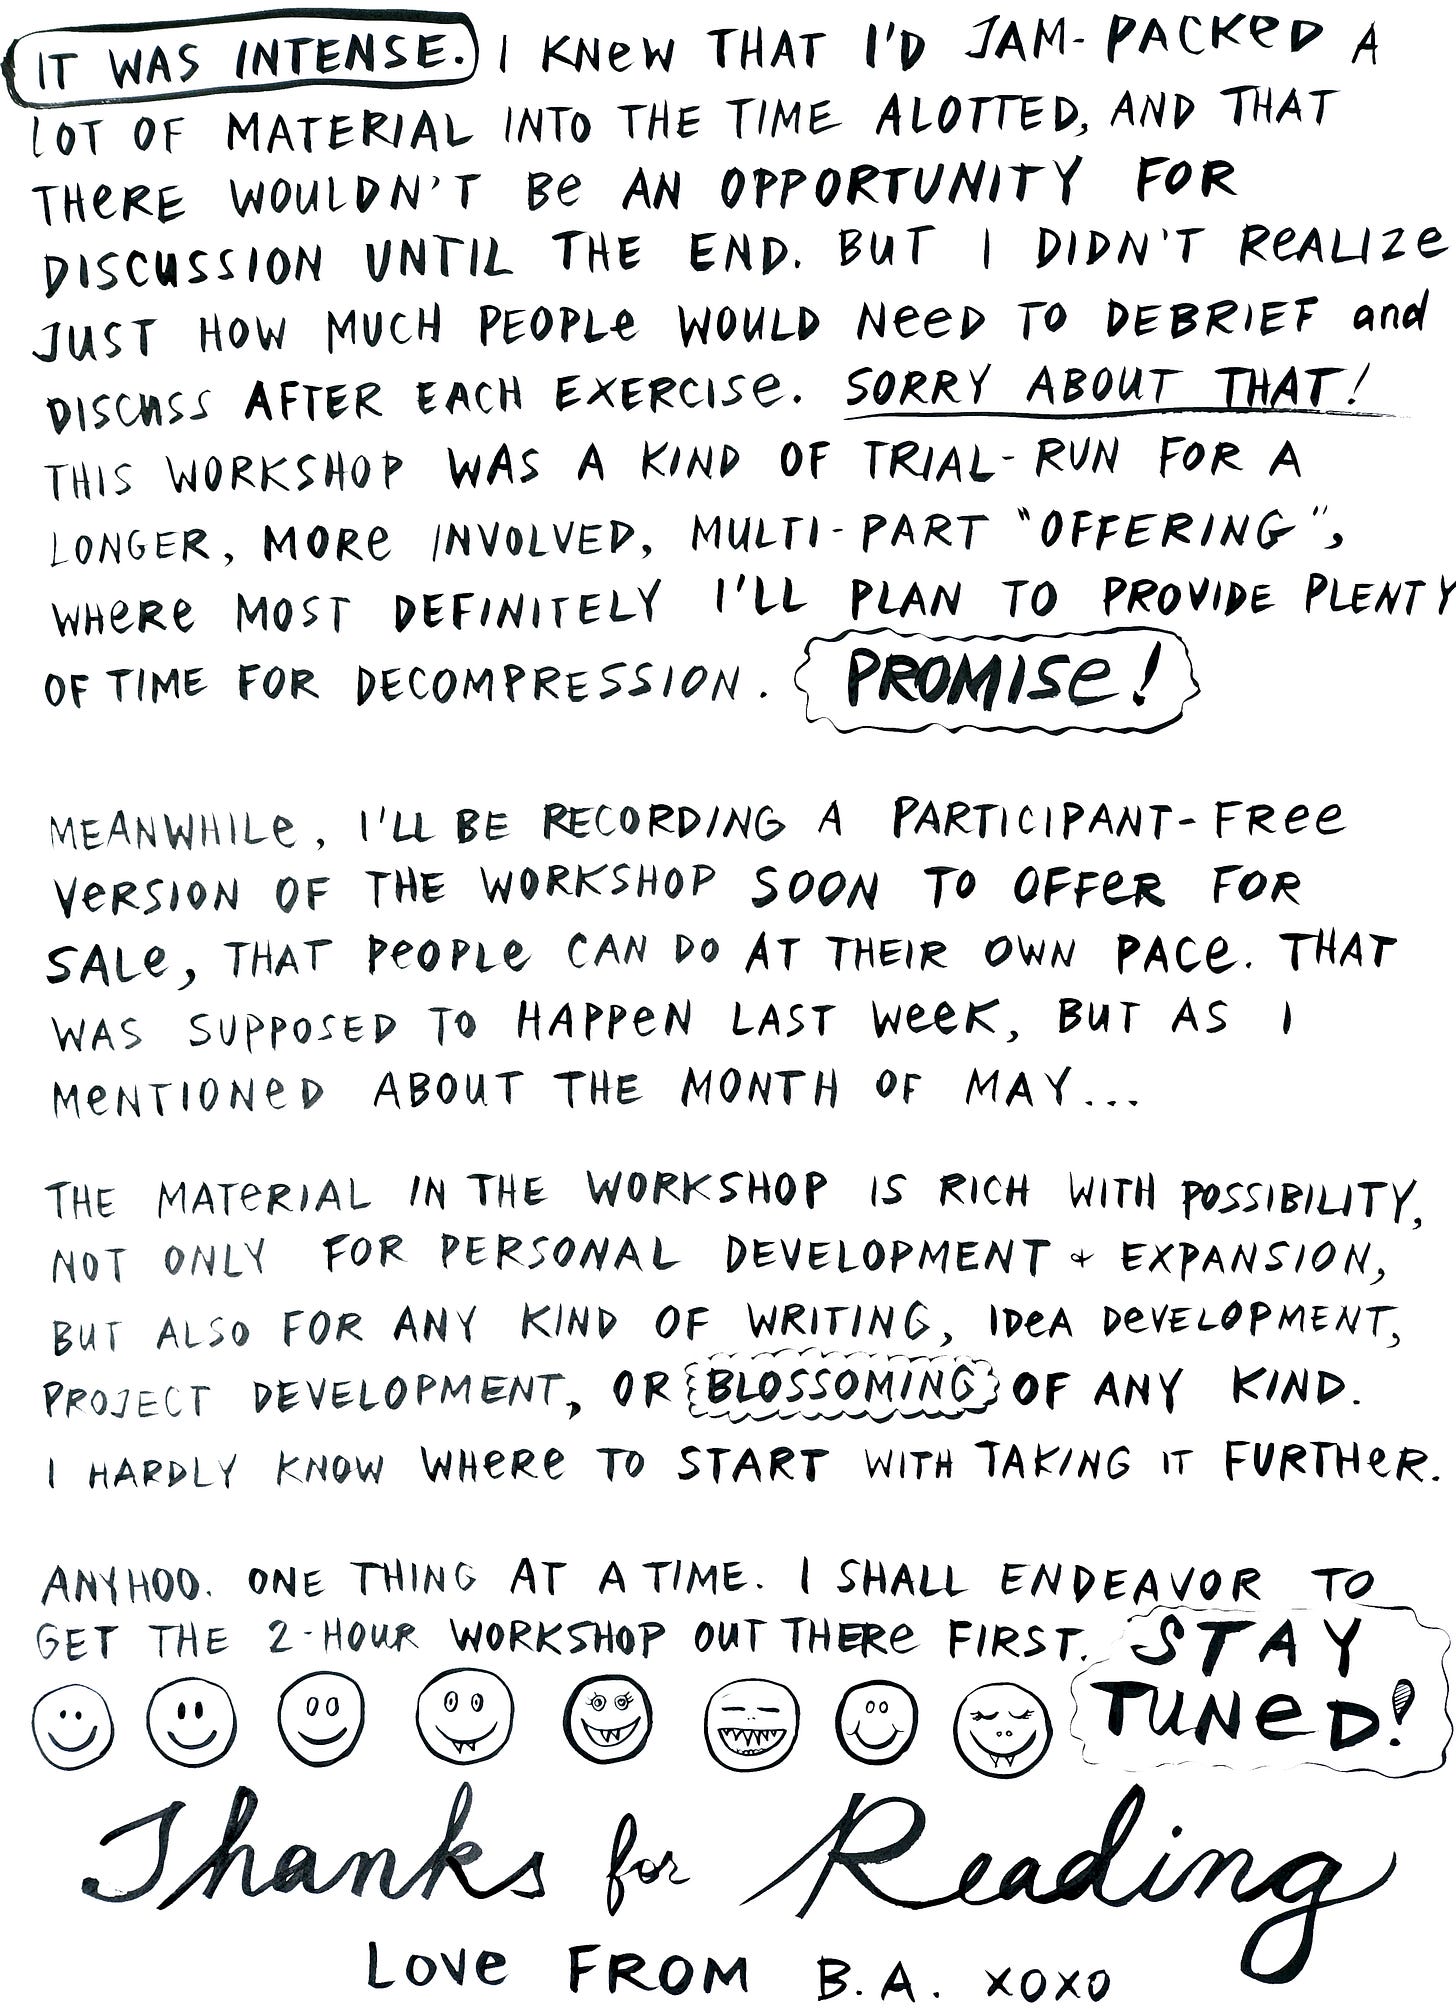 IT WAS INTENSE. I KNeW THAT I'D JAM-PACKeD A
LOT OF MATERIAL INTO THE TIME ALOTTED, AND THAT
THeRE WOULDN'T Be AN OPPORTUNITY FOR
DISCUSSION UNTIL THE END. BUT I DIDN'T ReALIZe
JUST HOW MUCH PEOPLe WOULD NeeD TO DEBRIEF and
DISCUSS AFTER EACH EXERCISe. SORRY ABOUT THAT!
THIS WORKSHOP WAS A KIND OF TRIAL-RUN FOR A
LONGER, MORe INVOLVED, MULTI-PART "OFFERING",
WHeRe MOST DEFINITELY I'LL PLAN TO PROVIDE PLENTY
OF TIME FOR DECOMPRESSION. PROMISe!
MEANWHILe, I'LL BE RECORDING A PARTICIPANT-FRee
VeRSION OF THE WORKSHOP SOON TO OFFeR FOR
SALe, THAT PeOPLe CAN DO AT THEIR OWN PACe. THAT
WAS SUPPOSED TO HAPPeN LAST WeeK, BUT AS I
MeNTIONeD ABOUT THE MONTH OF MAY...
THE MATeRIAL IN THE WORKSHOP IS RICH WITH POSSIBILITY,
NOT ONLY FOR PERSONAL DEVELOPMENT + EXPANSION,
BUT ALSO FOR ANY KIND OF WRITING, IDeA DeVELOPMENT,
PROJECT DEVELOPMENT, OR BLOSSOMING OF ANY KIND.
I HARDLY KNOW WHeRe TO START WITH TAKING IT FURTHeR.
ANYHOO. ONE THING AT A TIME. I SHALL ENDEAVOR TO
GET THE 2-HOUR WORKSHOP OUT THERe FIRST. STAY
TUNeD!
Thanks for Reading
LOVe FROM B.A. XOXO